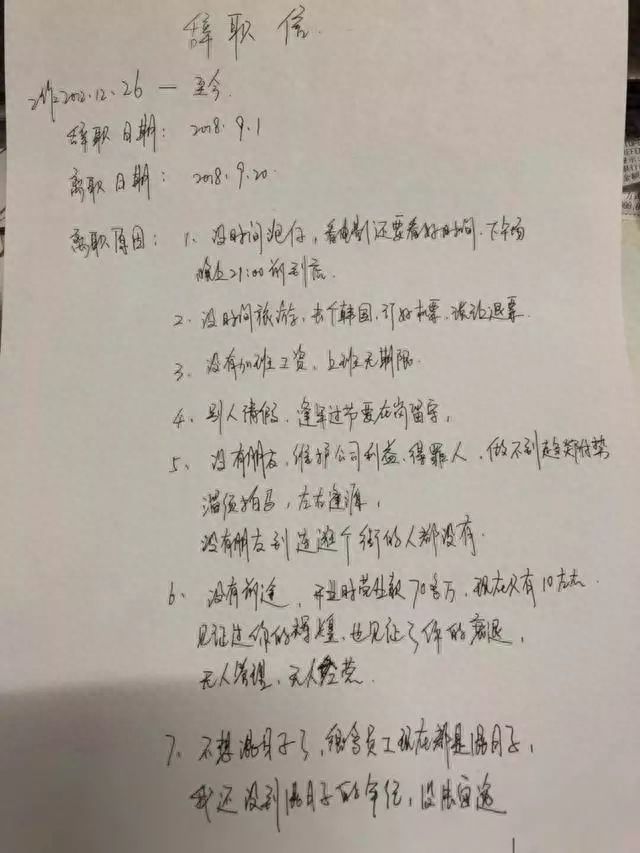 辞职信
工作:2012.12.26 — 至今
辞职日期: 2018.9.1
离职日期: 2018.9.20.
离职原因: 1、没时间泡仔,看电影还要看好时间.下午场
晚上21:00前到店.
2、没时间旅游,去个韩国,订好机票,被迫退票.
3、没有加班工资,上班无期限.
4、别人请假,逢年过节要在岗留守,
5、没有朋友,维护公司利益、得罪人,做不到趋炎附势
溜须拍马,左右逢源,
没有朋友到连逛个街的人都没有.
6、没有前途,开业时营业额70多万,现在只有10左右.
见证过你的辉煌,也见证了你的衰退,
无人管理,无人经营.
7、不想混日子了,很多员工现在都是混日子,
我还没到混日子的年纪,没法